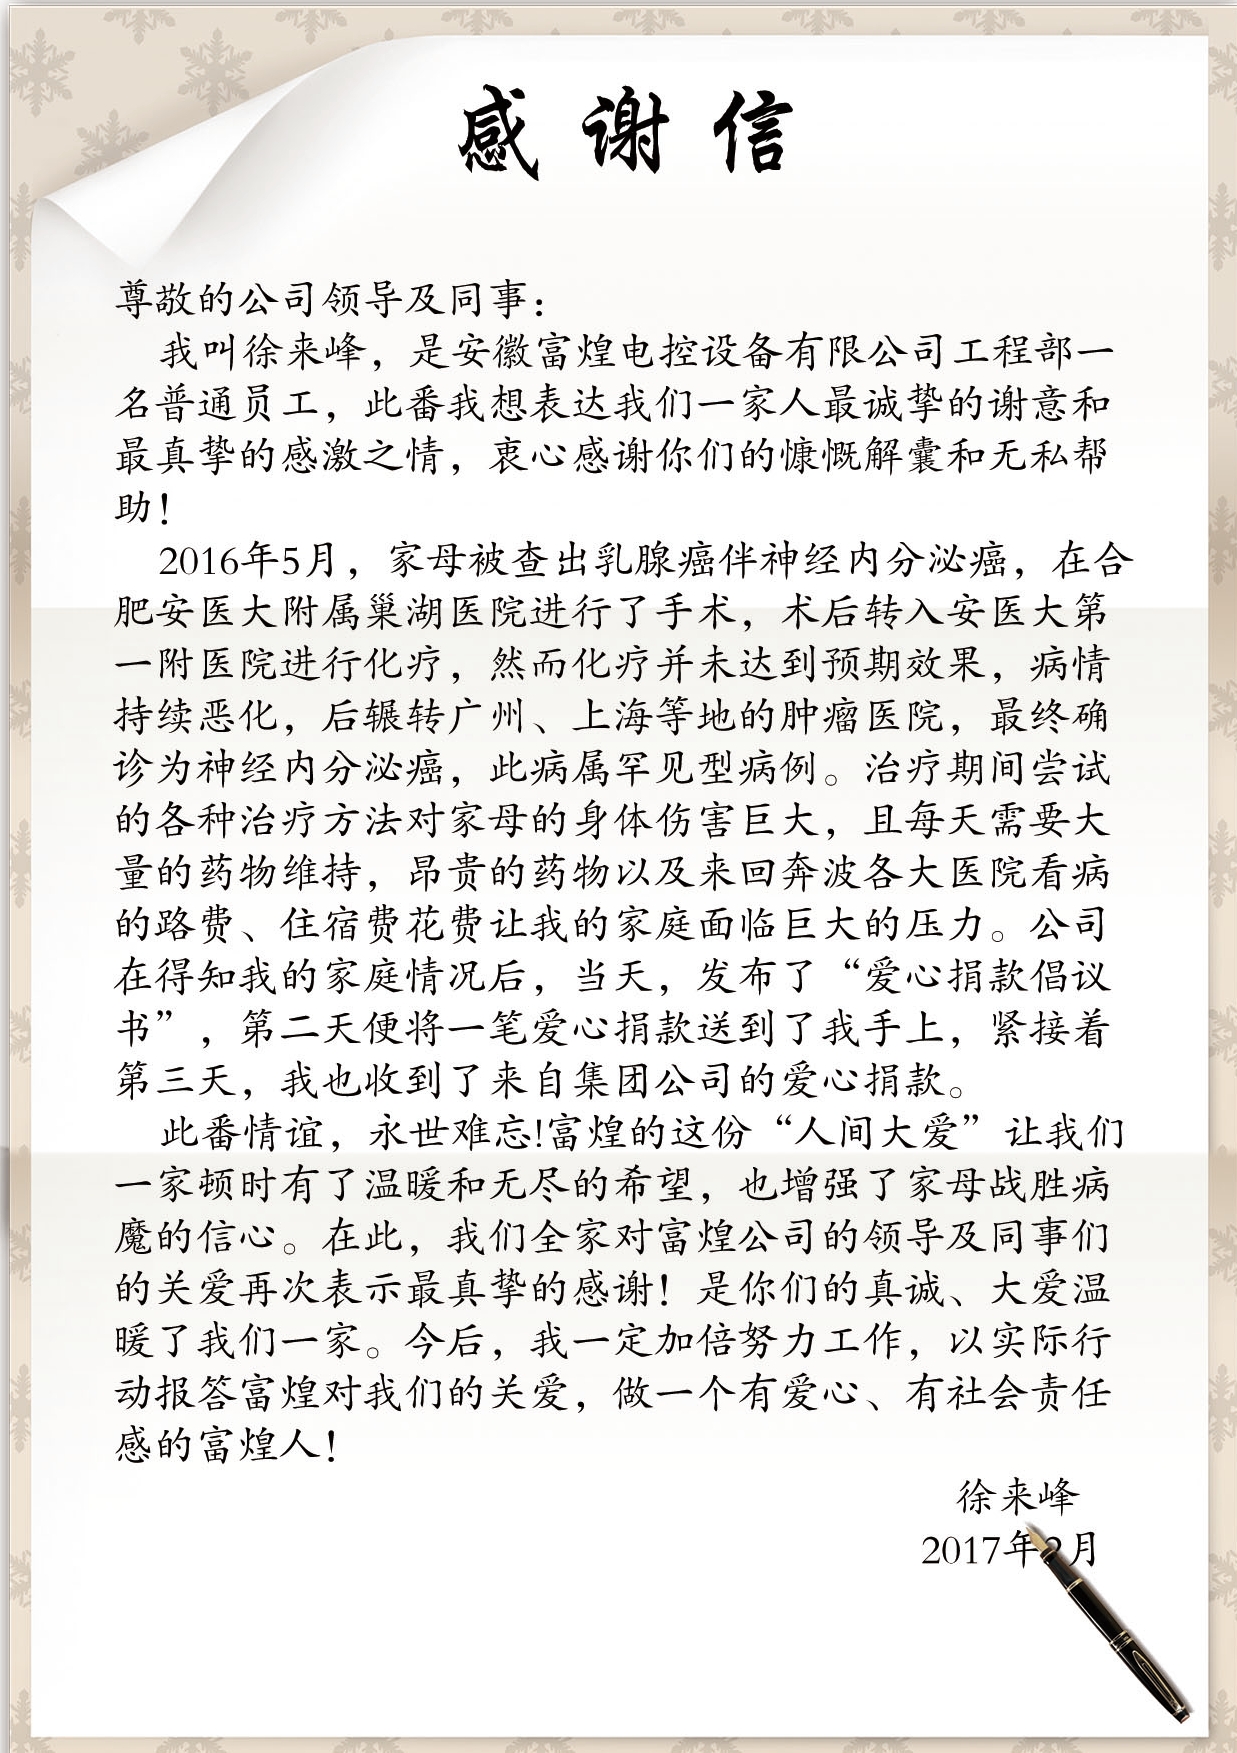 感谢信
尊敬的公司领导及同事：
我叫徐来峰，是安徽富煌电控设备有限公司工程部一
名普通员工，此番我想表达我们一家人最诚挚的谢意和
最真挚的感激之情，衷心感谢你们的慷慨解囊和无私帮
助！
2016年5月，家母被查出乳腺癌伴神经内分泌癌，在合
肥安医大附属巢湖医院进行了手术，术后转入安医大第
一附医院进行化疗，然而化疗并未达到预期效果，病情
持续恶化，后辗转广州、上海等地的肿瘤医院，最终确
诊为神经内分泌癌，此病属罕见型病例。治疗期间尝试
的各种治疗方法对家母的身体伤害巨大，且每天需要大
量的药物维持，昂贵的药物以及来回奔波各大医院看病
的路费、住宿费花费让我的家庭面临巨大的压力。公司
在得知我的家庭情况后，当天，发布了“爱心捐款倡议
书”，第二天便将一笔爱心捐款送到了我手上，紧接着
第三天，我也收到了来自集团公司的爱心捐款。
此番情谊，永世难忘!富煌的这份“人间大爱”让我们
一家顿时有了温暖和无尽的希望，也增强了家母战胜病
魔的信心。在此，我们全家对富煌公司的领导及同事们
的关爱再次表示最真挚的感谢！是你们的真诚、大爱温
暖了我们一家。今后，我一定加倍努力工作，以实际行
动报答富煌对我们的关爱，做一个有爱心、有社会责任
感的富煌人！
徐来峰
2017年2月